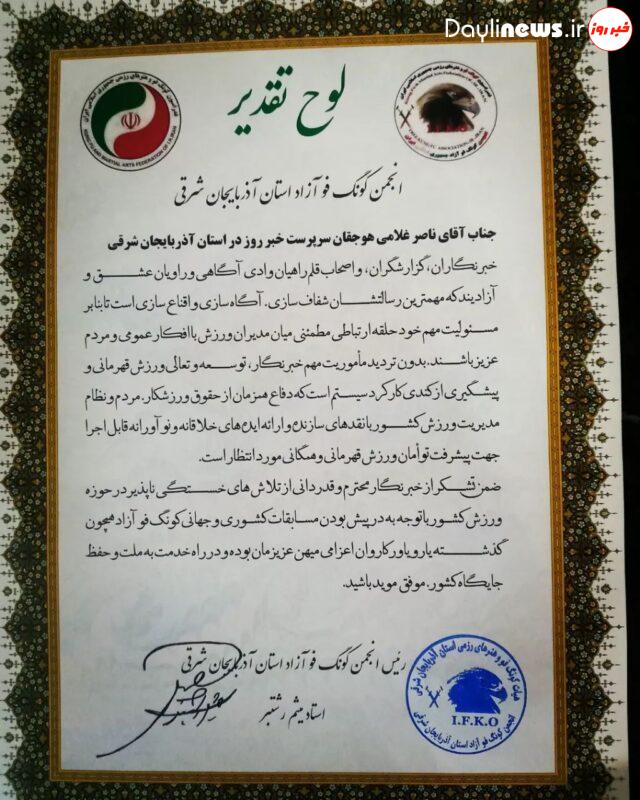 Daylinews.ir
خبر روز
لوح تقدیر
KUNG FU AND MARTIAL ARTS FEDERATION OF I.R.IRAN
I.F.K.O
انجمن کونگ فو آزاد استان آذربایجان شرقی
جناب آقای ناصر غلامی هوجقان سرپرست خبر روز در استان آذربایجان شرقی
خبرنگاران، گزارشگران، واصحاب قلم راهیان وادی آگاهی وراویان عشق و
آزادیند که مهمترین رسالتشان شفاف سازی. آگاه سازی و اقناع سازی است تا بنابر
مسئولیت مهم خود حلقه ارتباطی مطمئنی میان مدیران ورزش با افکار عمومی و مردم
عزیز باشند. بدون تردید مأموریت مهم خبرنگار، توسعه و تعالی ورزش قهرمانی و
پیشگیری از کندی کارکرد سیستم است که دفاع همزمان از حقوق ورزشکار. مردم و نظام
مدیریت ورزش کشور با نقدهای سازنده و ارائه ایده های خلاقانه و نوآورانه قابل اجرا
جهت پیشرفت توأمان ورزش قهرمانی و همگانی مورد انتظار است.
ضمن تشکر از خبرنگار محترم و قدردانی از تلاش های خستگی ناپذیر در حوزه
ورزش کشور با توجه به در پیش بودن مسابقات کشوری و جهانی کونگ فو آزاد همچون
گذشته یار و یاور کاروان اعزامی میهن عزیزمان بوده و در راه خدمت به ملت و حفظ
جایگاه کشور. موفق موید باشید.
رئیس انجمن کونگ فو آزاد استان آذربایجان شرقی
استاد میثم رشتبر
هیات کونگ فو و هنرهای رزمی استان آذربایجان شرقی
I.F.K.O
انجمن کونگ فو آزاد استان آذربایجان شرقی